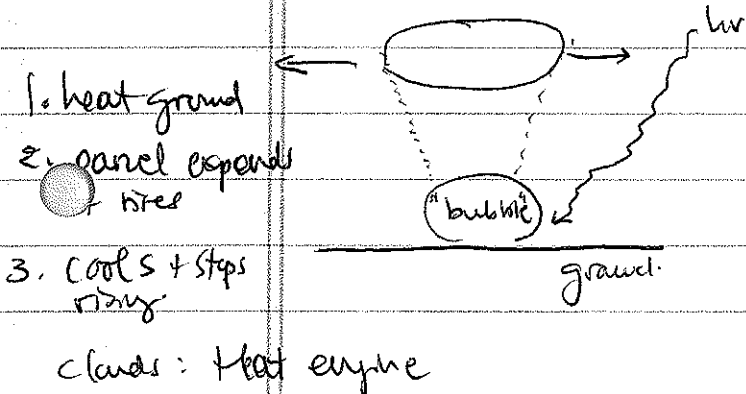 hν
1. heat ground
2. parcel expands
+ rises
"bubble"
3. cools + stops
rising.
ground.
clouds: Heat engine